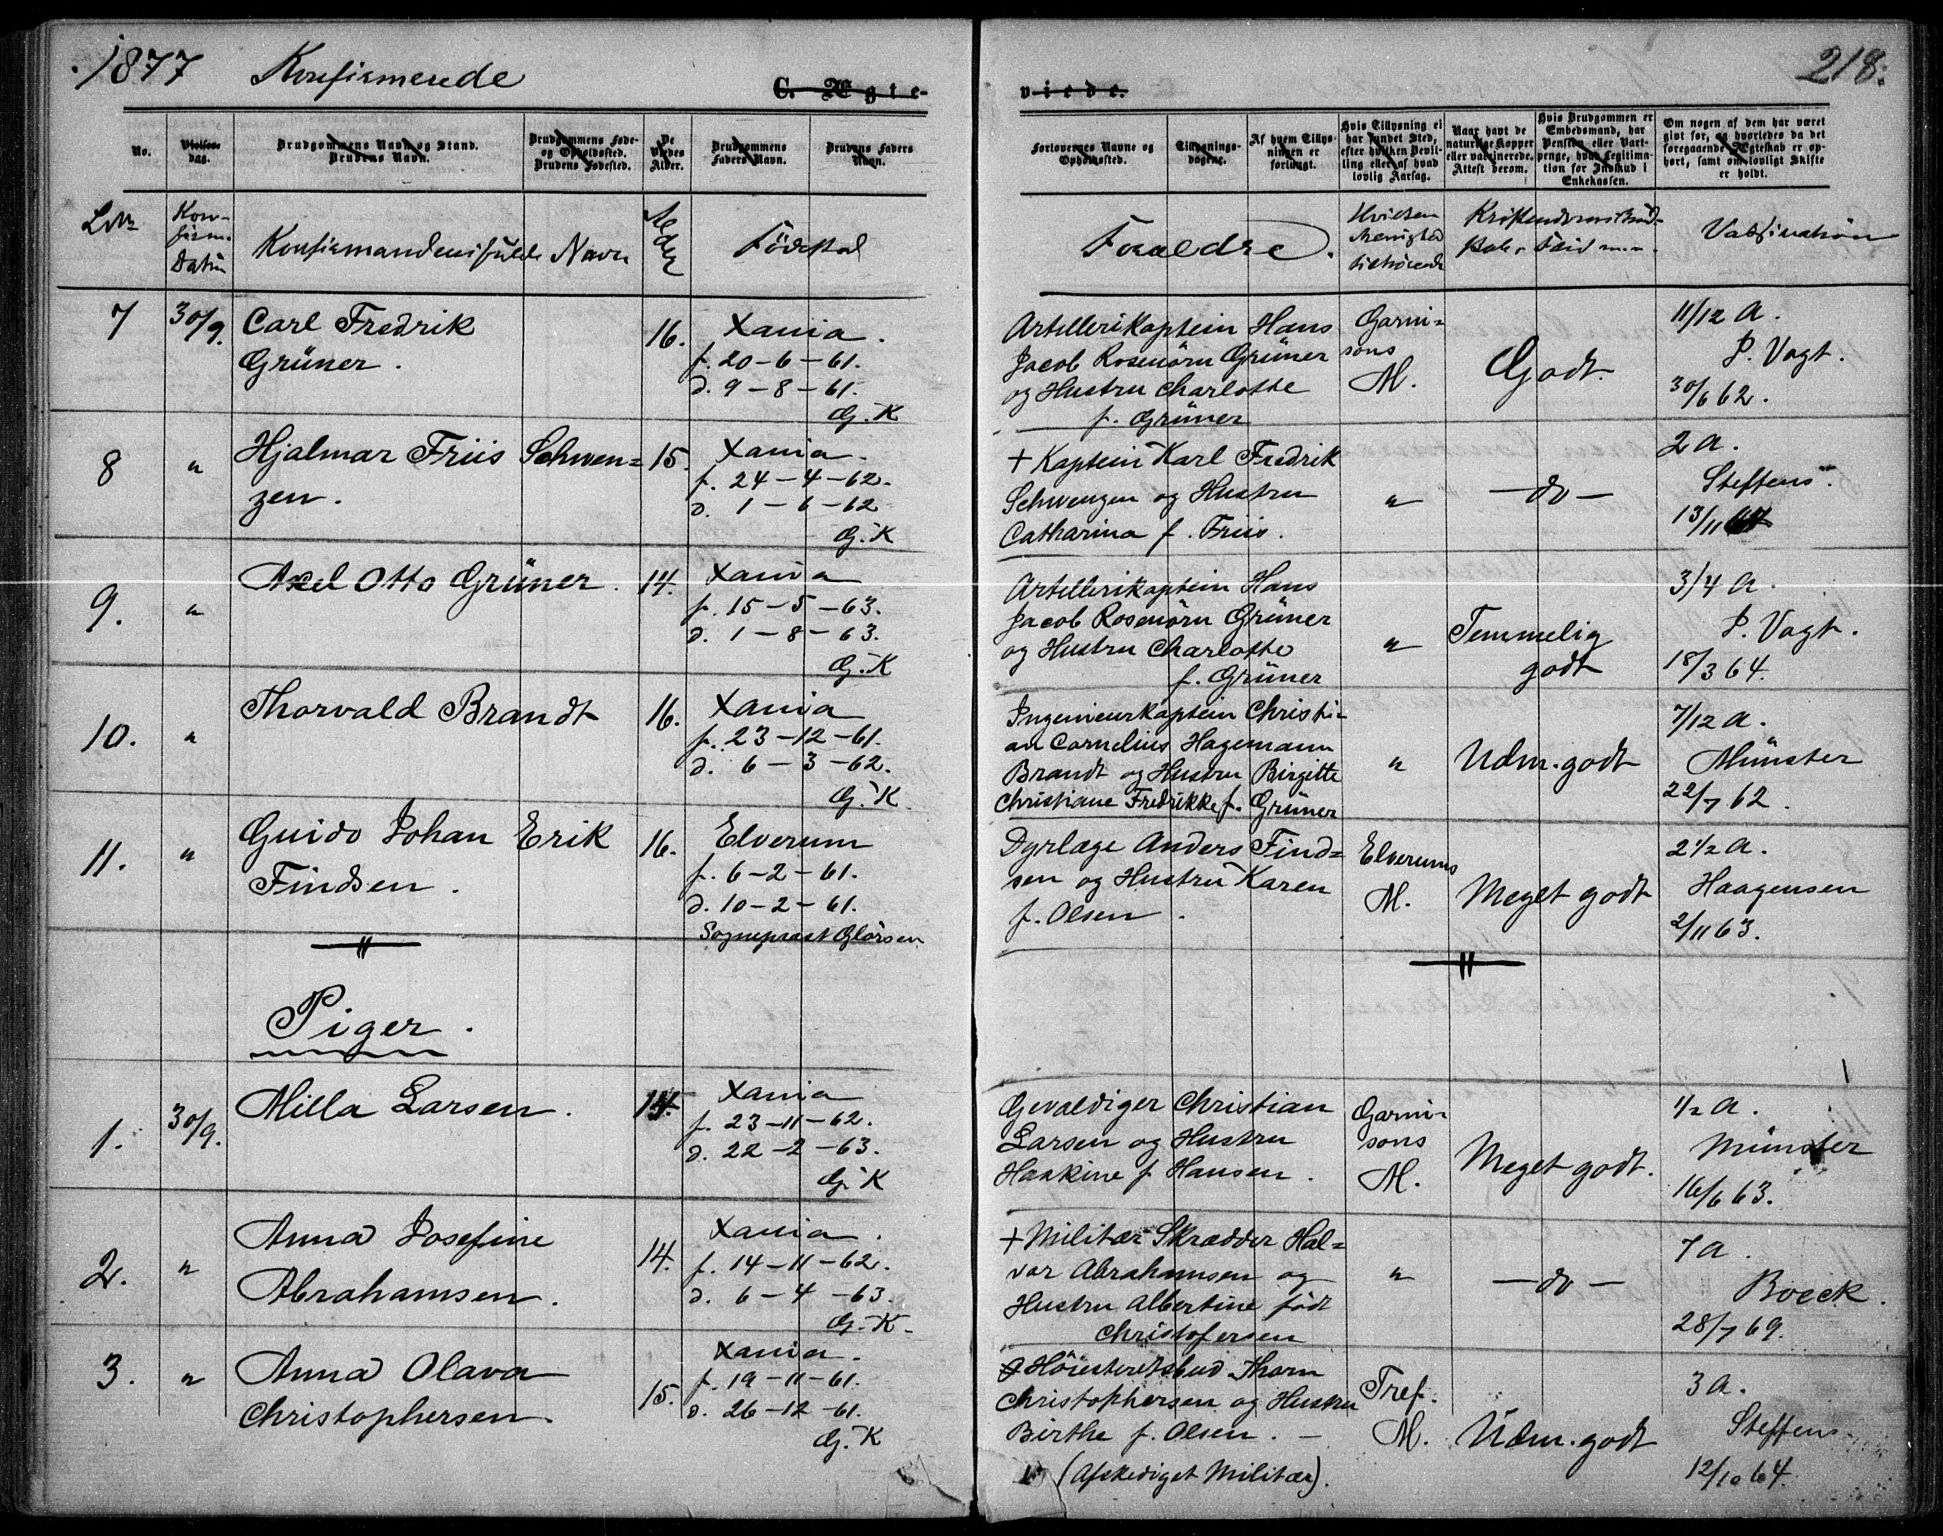 1877 Konfirmerede
C. Ægteviede.
218.
No.
Vielses-dag.
Brudgommens Navn og Stand.
Brudens Navn.
Brudgommens Føde- og Opholdssted.
Brudens Fødested.
De Viedes Alder.
Brudgommens Faders Navn.
Brudens Faders Navn.
Forlovernes Navne og Opholdssted.
Tillysnings-dagene.
Af hvem Tillysningen er forlangt.
Hvis Tillysning ei har fundet Sted, efter hvilken Bevilling eller af hvad lovlig Aarsag.
Naar havt de naturlige Kopper eller vaccinerede. Attest derom.
Hvis Brudgommen er Embedsmand, har Pension eller Vartpenge, hvad Legitimation for Indskud i Enkekassen.
Om nogen af dem har været givt før, og hvorledes da det foregaaende Ægteskab er ophørt, samt om lovligt Skifte er holdt.
LNr
Konfirm. Datum
Konfirmandens fulde Navn
Alder
Födested
Foraeldre.
Hvilken Menighed tilhörende
Kristendomskundskab, Flid m.m.
Vaksination
7
30/9.
Carl Fredrik
Grüner.
16.
Xania.
f. 20-6-61.
d. 9-8-61.
G.K
Artillerikaptein Hans
Jacob Rosenörn Grüner
og Hustru Charlotte
f. Grüner
Garnisons
M.
Godt.
11/12 A.
P. Vogt.
30/6 62.
8
"
Hjalmar Friis Schwen=
zen.
15.
Xania.
f. 24-4-62.
d. 1-6-62
G.K
+ Kaptein Karl Fredrik
Schwenzen og Hustru
Catharina f. Friis.
"
-do-
2 a.
Steffens.
13/11 64
9.
"
Axel Otto Grüner.
14.
Xania
f. 15-5-63.
d. 1-8-63.
G.K
Artillerikaptein Hans
Jacob Rosenörn Grüner
og Hustru Charlotte
f. Grüner
"
Temmelig
godt
3/4 a.
P. Vogt.
18/3 64.
10.
"
Thorvald Brandt
16.
Xania
f. 23-12-61.
d. 6-3-62.
G.K.
Ingenieurkaptein Christi-
an Cornelius Hagemann
Brandt og Hustru Birgitte
Christiane Fredrikke f. Grüner
"
Udm. godt
7/12 a.
Münster
22/7 62.
11.
"
Guido Johan Erik
Findsen.
16.
Elverum
f. 6-2-61.
d. 10-2-61.
Sogneprast Glörsen
Dyrlæge Anders Find=
sen og Hustru Karen
f. Olsen.
Elverums
M.
Meget godt
2 1/2 a.
Haagensen
2/11 63.
Piger.
1.
30/9.
Milla Larsen.
14.
Xania
f. 23-11-62.
d. 22-2-63.
G.K
Gevaldiger Christian
Larsen og Hustru
Haakine f Hansen.
Garnisons
M.
Meget godt.
1/2 a.
Münster
16/6 63.
2.
"
Anna Josefine
Abrahamsen.
14.
Xania.
f. 14-11-62.
d. 6-4-63.
G.K.
+ Militær Skrædder Hal=
vor Abrahamsen og
Hustru Albertine född
Christofersen
"
-do-
7 a.
Boeck.
28/7 69.
3.
"
Anna Olava
Christophersen.
15.
Xania.
f. 19-11-61.
d. 26-12-61.
G.K
Höiesteretsbud Thorn
Christophersen og Hustru
Birthe f. Olsen. -
(Afskediget Militær).
Tref.
M.
Udm. godt
3 a.
Steffens
12/10 64.